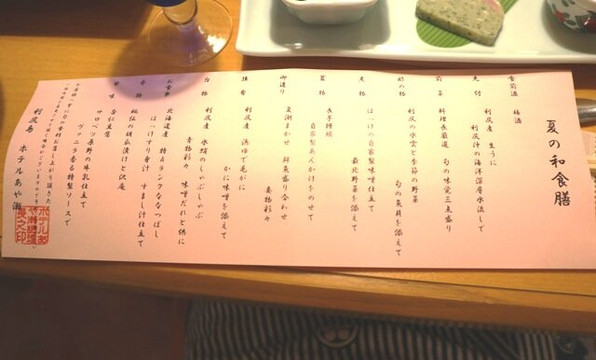 夏の和食膳
食前酒　梅酒
先付　利尻産　生うに
利尻沖の海洋深層水流しで
前菜　料理長厳選　旬の味覚三点盛り
酢の物　利尻の水雲と季節の野菜
旬の魚貝を添えて
煮物　ほっけの自家製味噌仕立て
最北野菜を添えて
蒸物　长芋饅頭
自家製あんかけをのせて
御造り　美湖まかせ　鮮魚盛り合わせ
妻物彩々
焼肴　利尻産　浜ゆで毛がに
かに味噌を添えて
台物　利尻産　水蛸のしゃぶしゃぶ
青物彩々　味噌だれと供に
お食事　北海道産　特Aランクななつぼし
ほっけすり身汁　すまし汁仕立て
香物　秘伝の胡瓜漬けと沢庵
甘味　杏仁豆腐
サロベツ原野の牛乳仕立て
ヴァニラ香る特製ソースで
利尻島　ホテルあや瀬